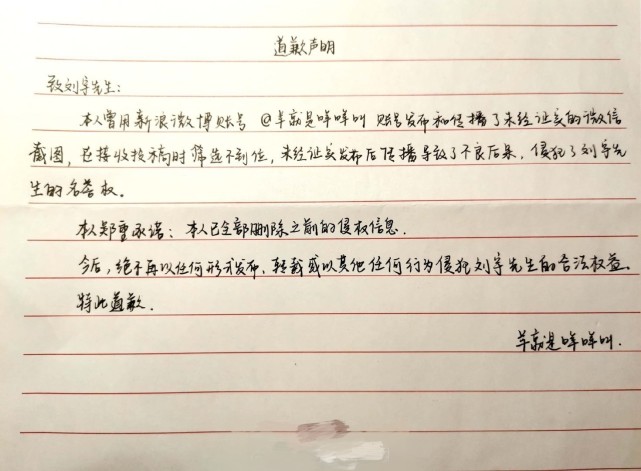 道歉声明
致刘宇先生：
本人曾用新浪微博账号 @羊就是咩咩叫 账号发布和传播了未经证实的微信
截图，在接收投稿时筛选不到位，未经证实发布后传播导致了不良后果，侵犯了刘宇先
生的名誉权．
本人郑重承诺：本人已全部删除之前的侵权信息．
今后，绝不再以任何形式发布、转载或以其他任何行为侵犯刘宇先生的合法权益。
特此道歉．
羊就是咩咩叫．